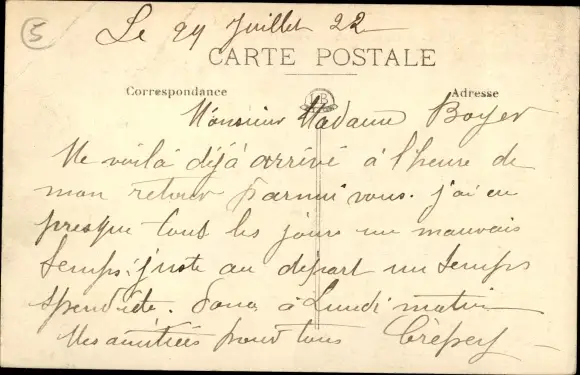 5
Le 29 Juillet 22
CARTE POSTALE
Correspondance
LB
Adresse
Monsieur Madame Boyer
Me voilà déjà arrivé à l'heure de
mon retour parmi vous. j'ai eu
presque tous les jours un mauvais
temps; juste au départ un temps
splendide. Donc à Lundi matin
Mes amitiés pour tous Crépey